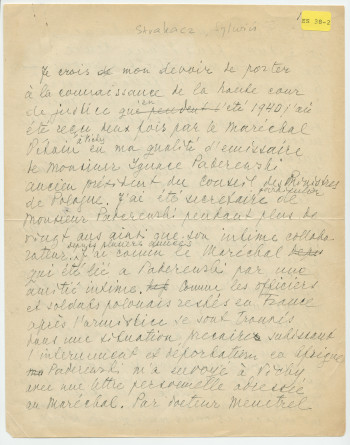 Strakacz, Sylwin
ES 26-2
Je crois de mon devoir de porter
à la connaissance de la haute cour
de justice qu'en pendant l'été 1940 j'ai
été reçu deux fois par le Maréchal
à Vichy
Pétain en ma qualité d'émissaire
de Monsieur Ignace Paderewski
ancien président du Conseil des Ministres
de Pologne. J'ai été secrétaire
particulier
de
Monsieur Paderewski pendant plus de
vingt ans ainsi que son intime collabo-
rateur. J'ai connu le Maréchal
qui était lié à Paderewski par une
amitié intime. Comme les officiers
et soldats polonais restés en France
après l'armistice se sont trouvés
dans une situation précaire subissant
l'internement et déportation en Afrique
Paderewski m'a envoyé à Vichy
avec une lettre personnelle adressée
au Maréchal. Par docteur Menetrel